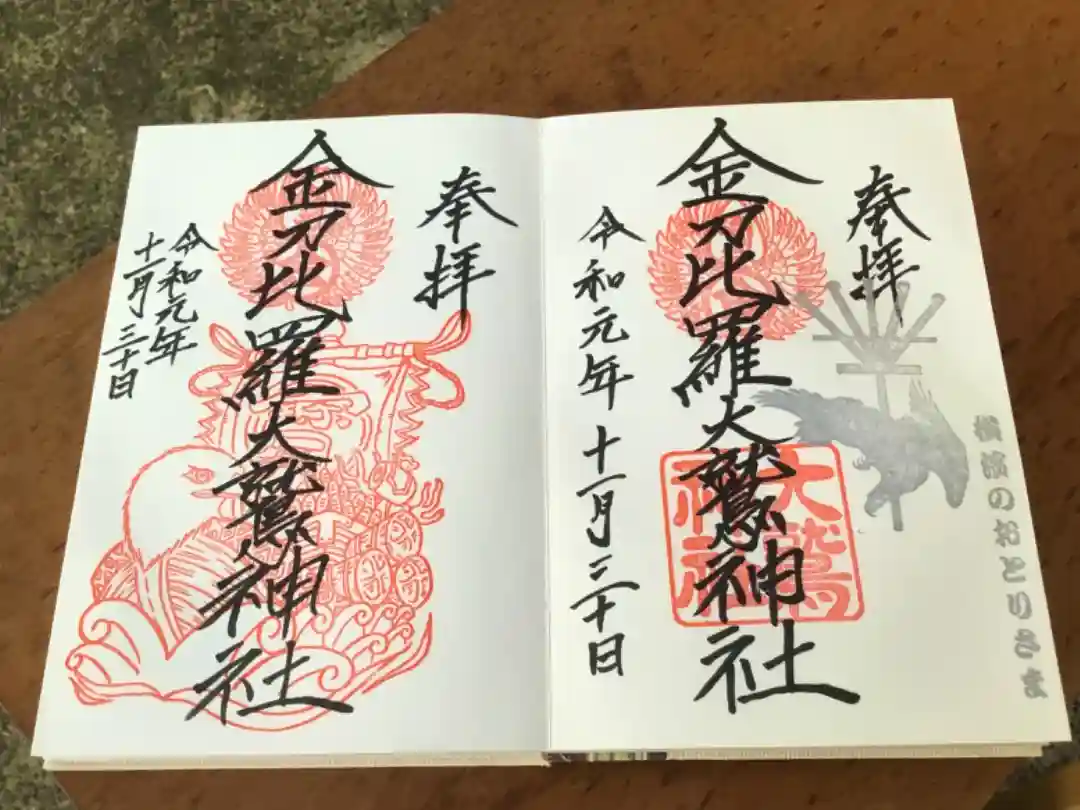 奉拝
金刀比羅大鷲神社
令和元年
十一月三十日
奉拝
金刀比羅大鷲神社
令和元年十一月三十日
大鷲
神社
横濱のおとりさま